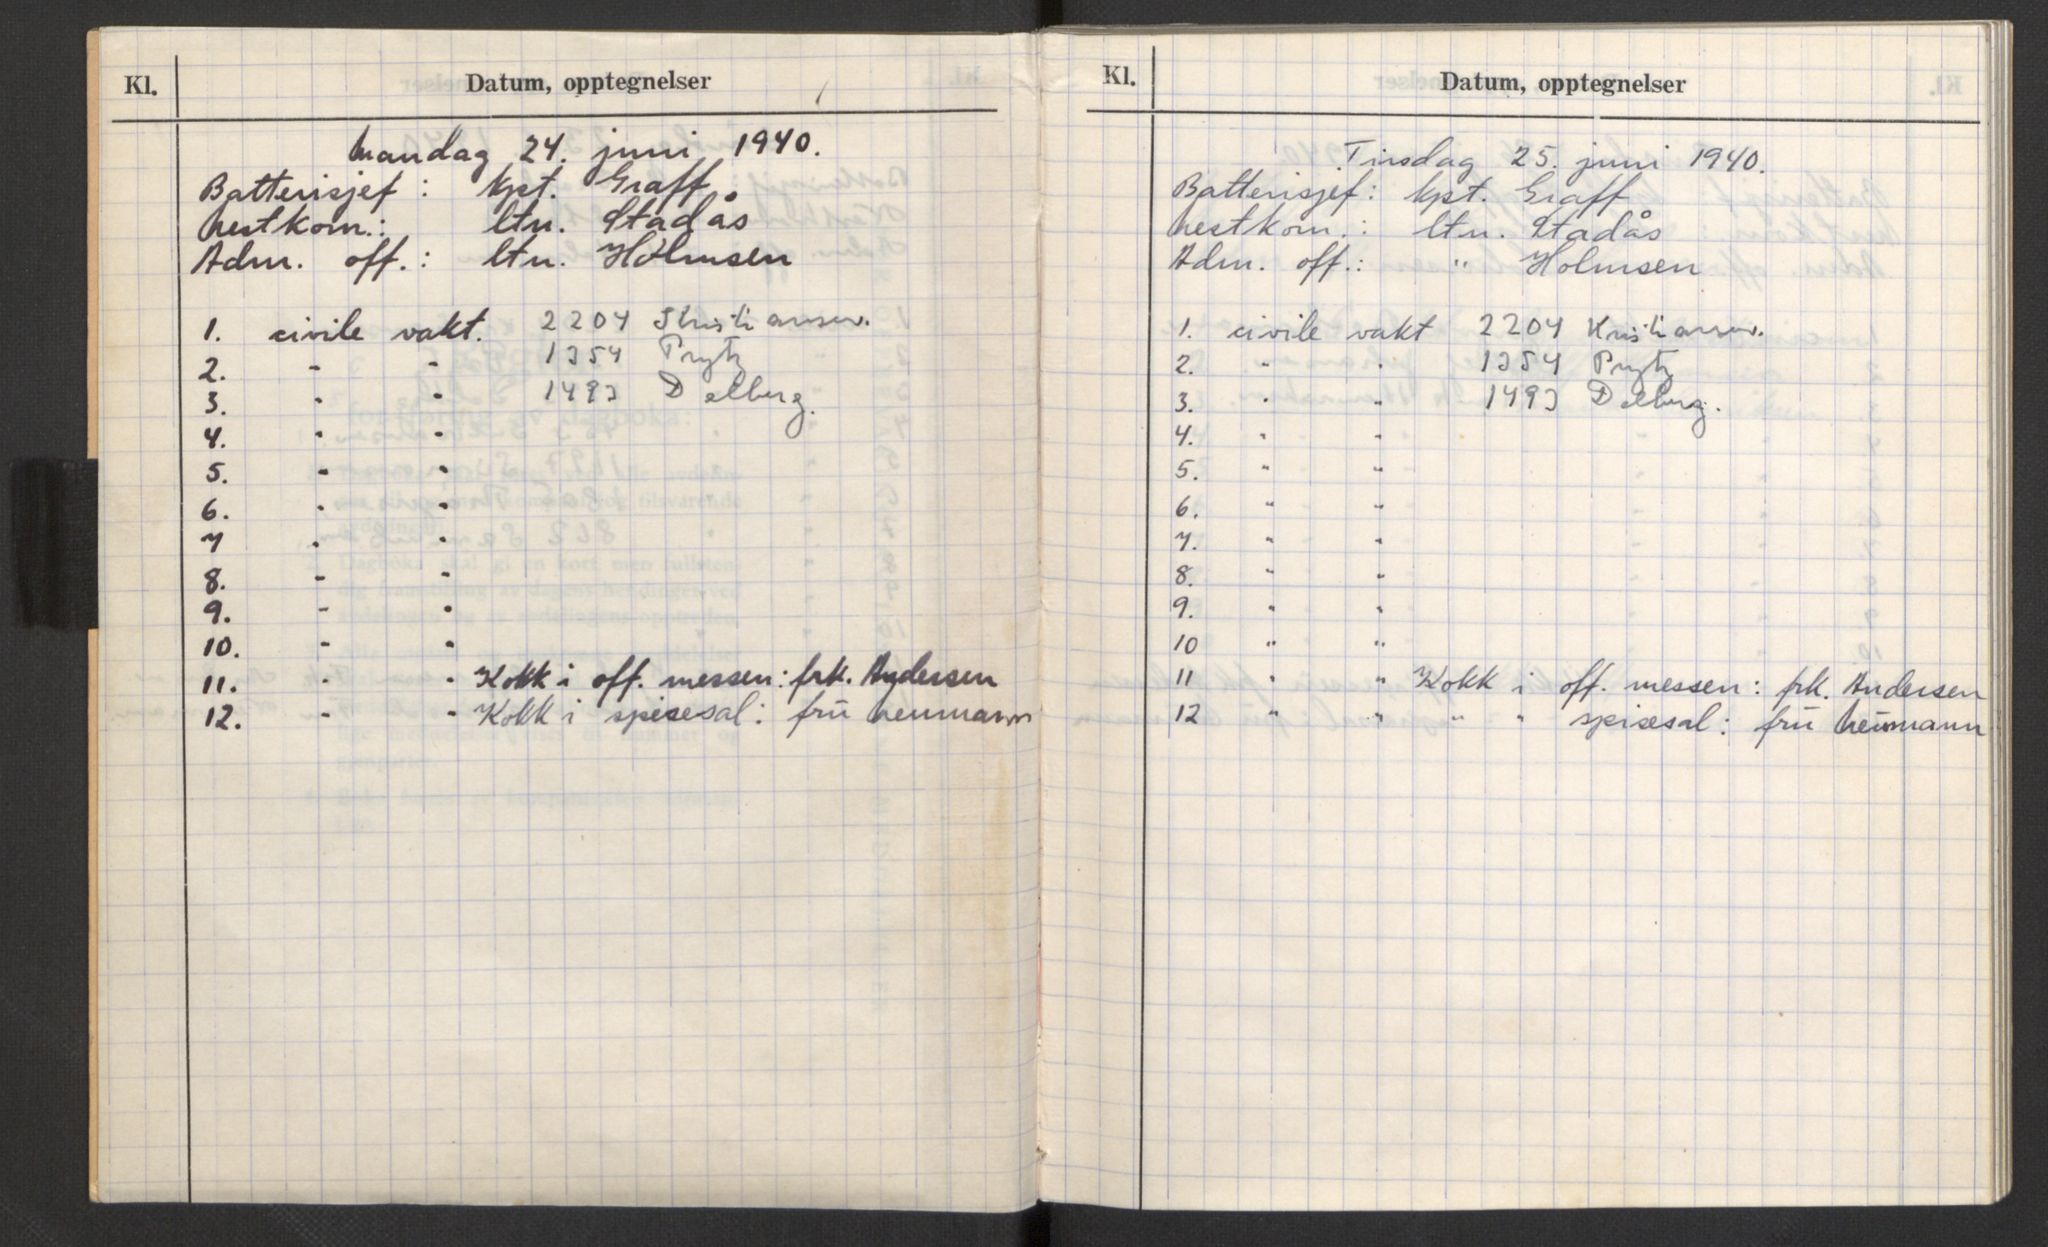 Kl. Datum, opptegnelser
Mandag 24. juni 1940.
Batterisjef: kpt. Graff
Nestkom.: ltn. Stadås
Adm. off.: ltn. Holmsen
1. civile vakt. 2204 Kristiansen.
2. " " 1354 Prytz
3. " " 1493 Dalberg.
4. " "
5. " "
6. " "
7 " "
8. " "
9. " "
10. " "
11. " " Kokk i off. messen: frk. Andersen
12. " " Kokk i spisesal: frü Neumann
Kl. Datum, opptegnelser
Tirsdag 25. juni 1940.
Batterisjef: kpt. Graff
Nestkom.: ltn. Stadås
Adm. off.: " Holmsen
1. civile vakt 2204 Kristiansen.
2. " " 1354 Prytz
3. " " 1493 Dalberg.
4. " "
5. " "
6. " "
7. " "
8. " "
9. " "
10 " "
11 " " Kokk i off. messen: frk. Andersen
12 " " " " spisesal: frü Neumann